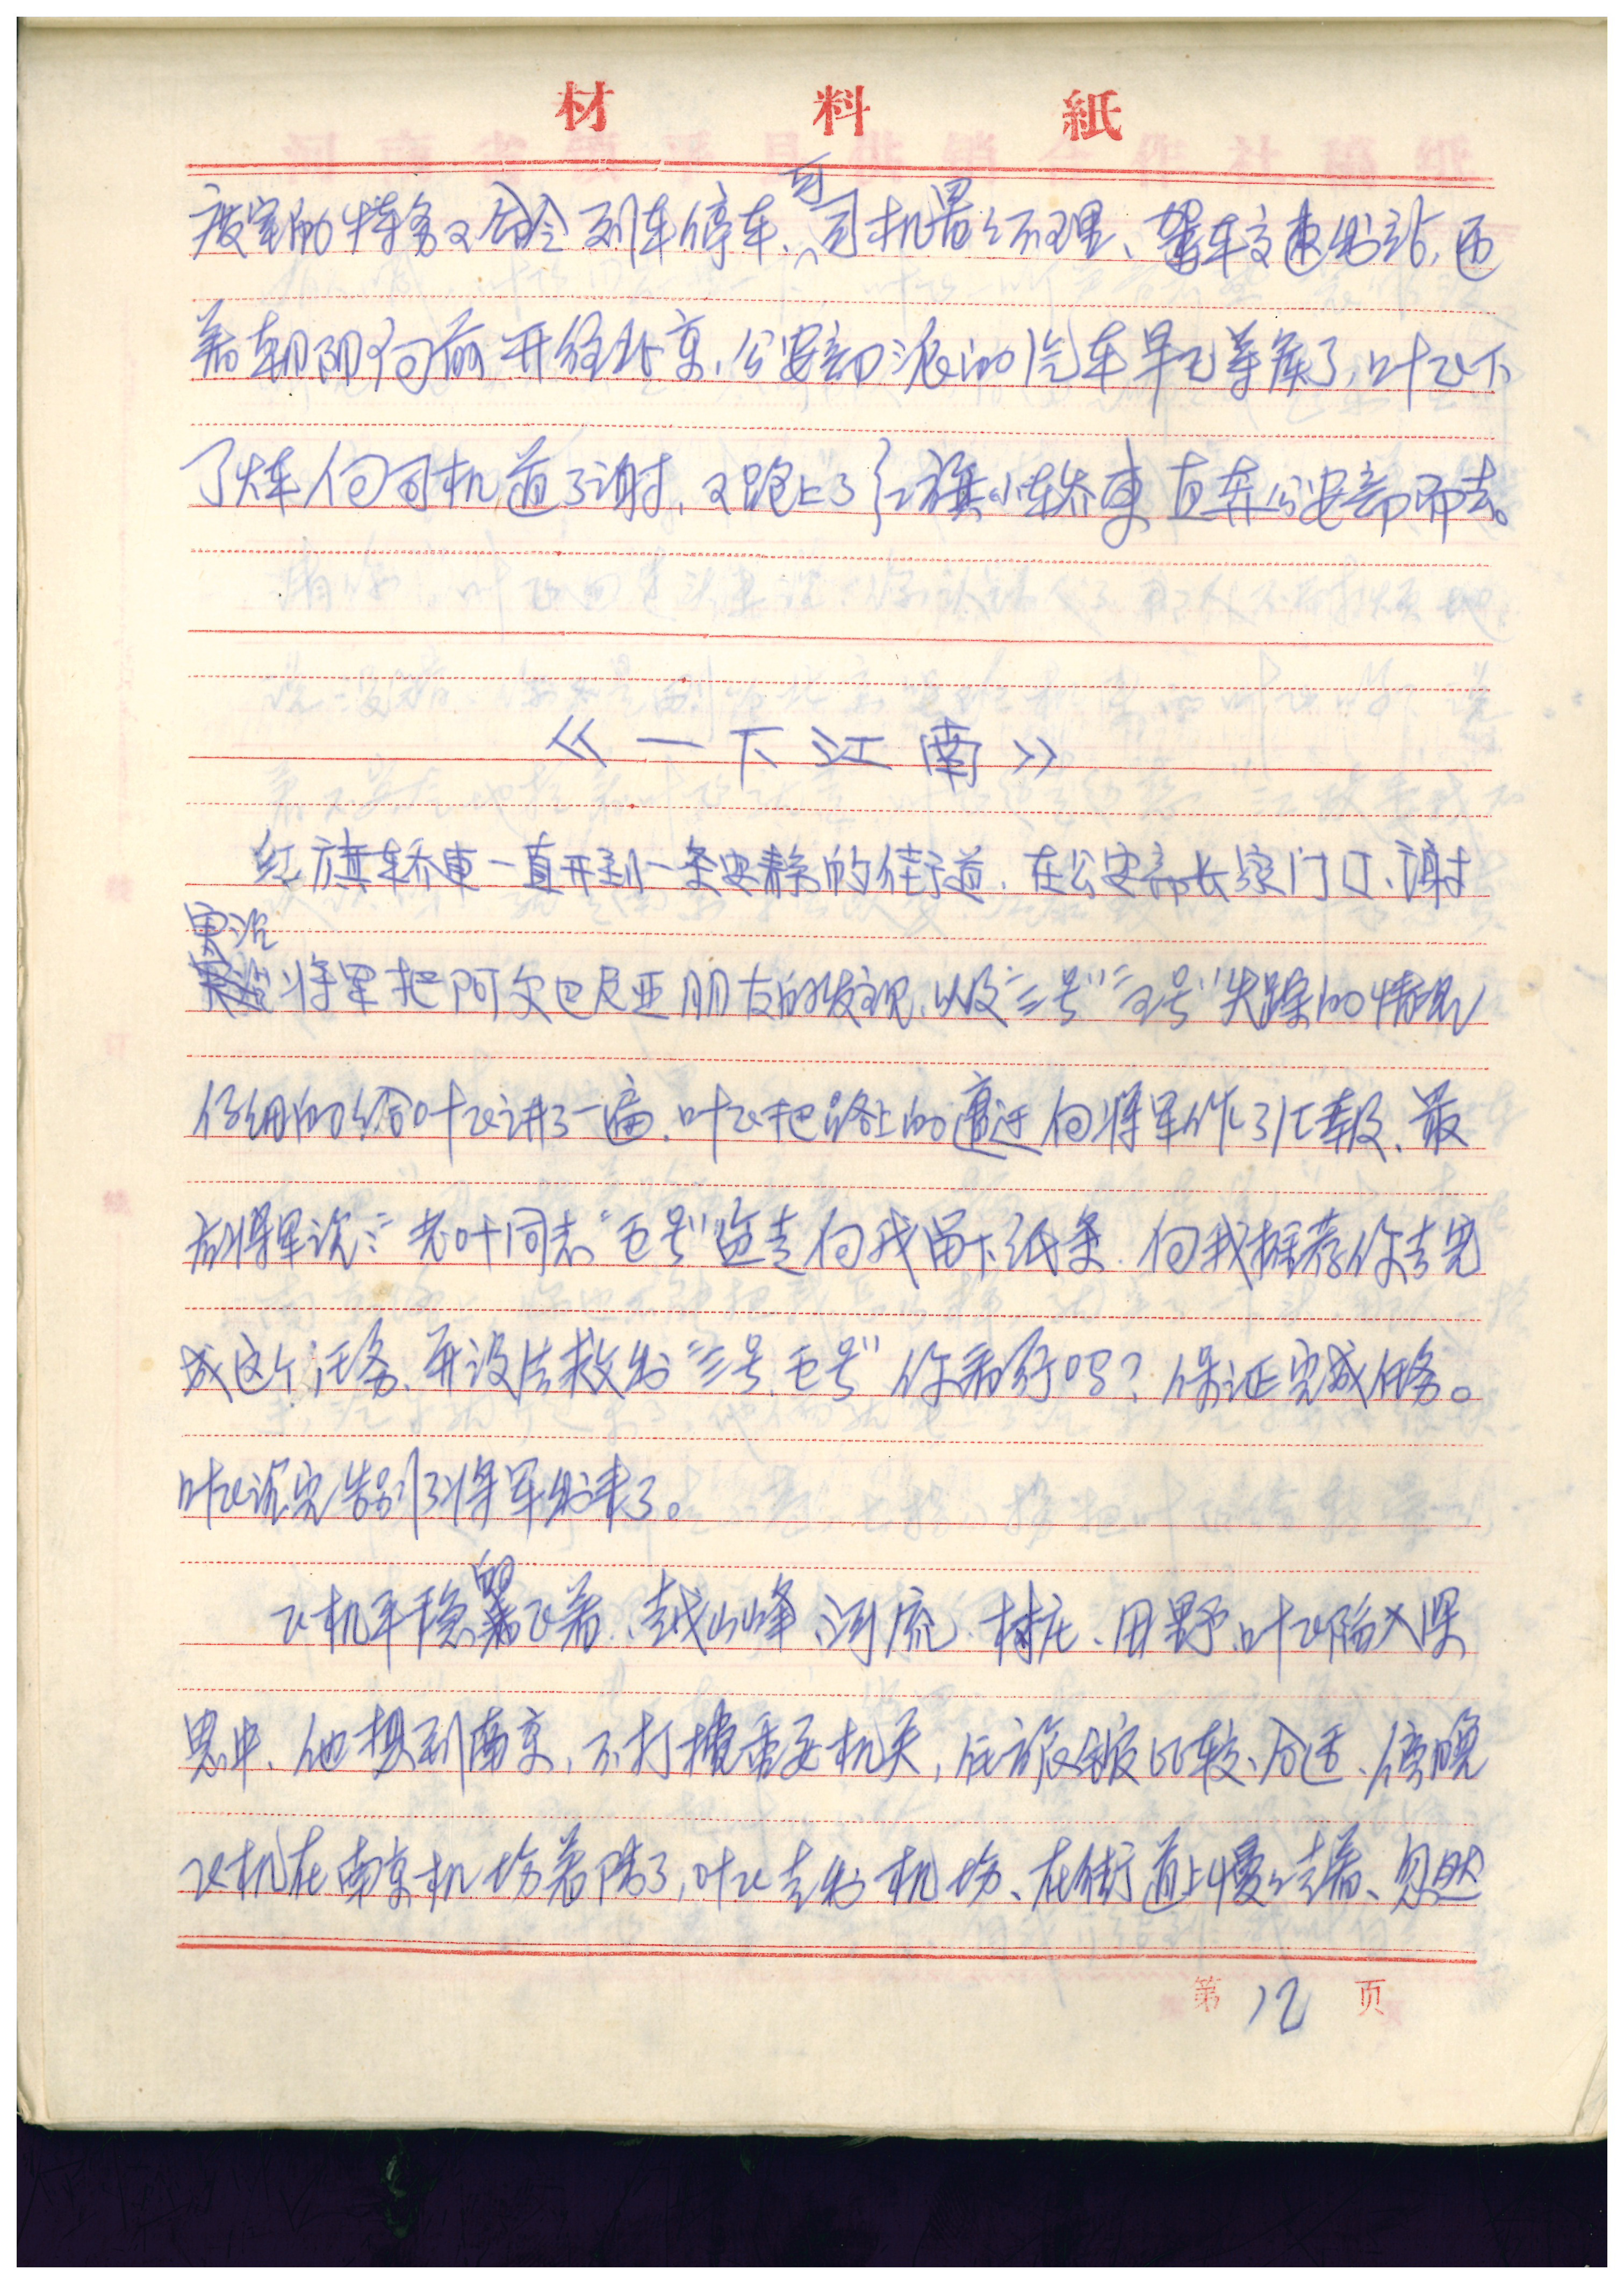 材料紙
度室的特务又命令列车停车、可司机置之不理、驾车交速出站,迎
着朝阳向前开往北京,公安部派的汽车早已等候了,叶飞下
了火车向司机道了谢,又跨上了红旗小轿車直奔公安部而去。
《一下江南》
红旗轿車一直开到一条安静的街道,在公安部长家门口、谢
富治
将军把阿尔巴尼亚朋友的发现,以及“三号”“五号”失踪的情况
仔细的给叶飞讲了一遍,叶飞把路上的遭迂向将军作了汇報、最
后将军说:“老叶同志“五号”临走向我留下纸条,向我推荐你去完
成这个任务、并设法救出“三号、五号”你看行吗?保证完成任务。
叶飞说完告别了将军出来了。
飞机平稳的飞着、越山峰、河流、村庄、田野,叶飞陷入深
思中、他想到南京,不打搅重要机关,住旅館比较合适、傍晚
飞机在南京机场着陆了,叶飞走出机场、在街道上慢慢走着、忽然
第12页